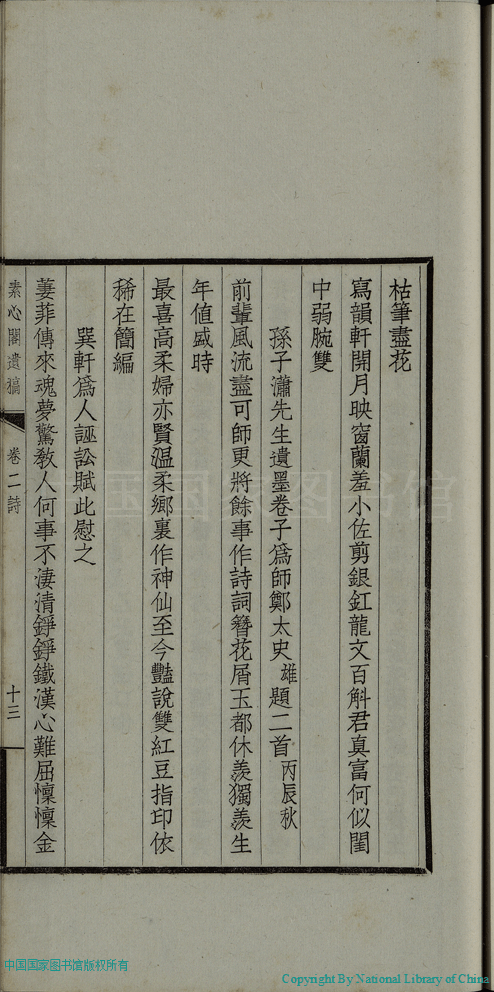 枯筆盡花
寫韻軒開月映窗蘭羞小佐剪銀釭龍文百斛君真富何似閨
中弱腕雙
孫子瀟先生遺墨卷子爲師鄭太史雄題二首丙辰秋
前輩風流盡可師更將餘事作詩詞簪花屑玉都休羨獨羨生
年值盛時
最喜高柔婦亦賢溫柔鄉裏作神仙至今豔說雙紅豆指印依
稀在簡編
巽軒爲人誣訟賦此慰之
萋菲傳來魂夢驚教人何事不淒清錚錚鐵漢心難屈懍懍金
素心閣遺稿 卷二詩 十三
国国家图书馆
中国国家图书馆版权所有
Copyright By National Library of China